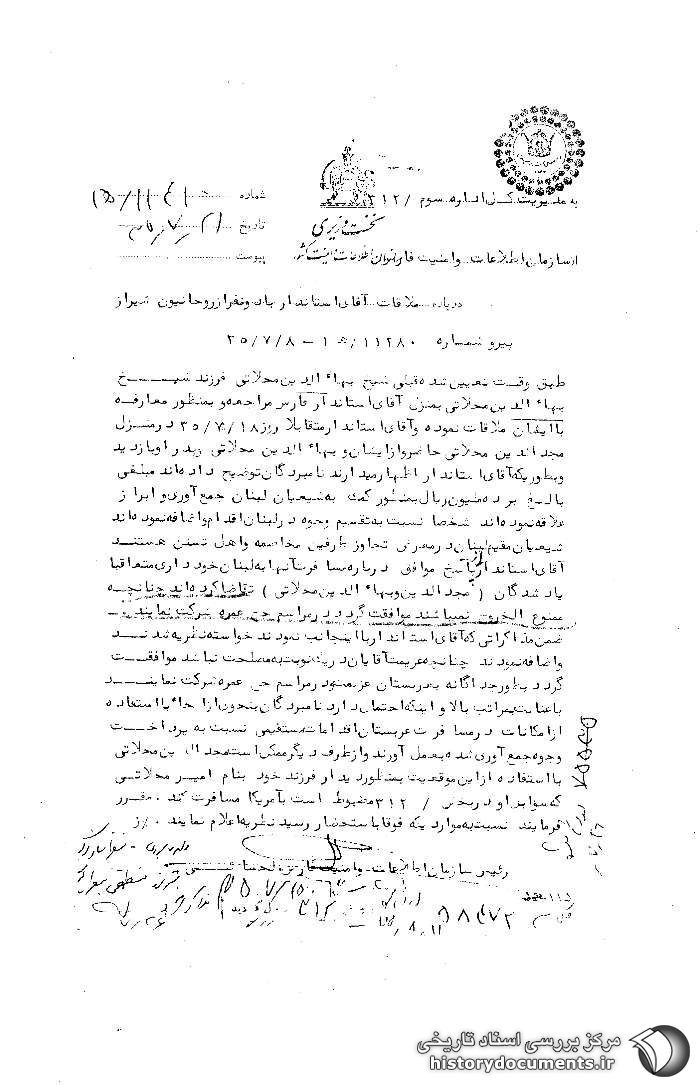 به مدیریت کل اداره سوم / ۳۱۲
نخست وزیری
شماره
تاریخ
پیوست
از سازمان اطلاعات و امنیت فارس
سازمان اطلاعات و امنیت کشور
درباره ملاقات آقای استاندار با دو نفر از روحانیون شیراز
پیرو شماره ۱۱۲۸۰/ه ۱ - ۳۵/۷/۸
طبق وقت تعیین شده قبلی شیخ بهاء الدین محلاتی فرزند شیخ
بهاء الدین محلاتی بمنزل آقای استاندار فارس مراجعه و بمنظور معارفه
با ایشان ملاقات نموده و آقای استاندار متقابلا روز ۳۵/۷/۱۸ در منزل
مجد الدین محلاتی حاضر و از ایشان و بهاء الدین محلاتی پدر او بازدید
و بطوریکه آقای استاندار اظهار میدارند نامبردگان توضیح داده اند مبلغی
بالغ بر ده ملیون ریال بمنظور کمک به شیعیان لبنان جمع آوری و ابراز
علاقه نموده اند شخصا نسبت به تقسیم وجوه در لبنان اقدام و اضافه نموده اند
شیعیان مقیم لبنان در معرض تجاوز طرفین مخاصمه و اهل تسنن هستند
آقای استاندار از پاسخ موافق درباره مسافرت آنها به لبنان خودداری متعاقبا
یاد شدگان ( مجد الدین و بهاء الدین محلاتی ) تقاضا کرده اند چنانچه
ممنوع الخروج نمیباشند موافقت گردد در مراسم حج عمره شرکت نمایند .
ضمن مذاکراتی که آقای استاندار با اینجانب نمودند خواسته نظریه شدند
و اضافه نمودند چنانچه عزیمت آقایان در یک نوبت به مصلحت نباشد موافقت
گردد بطور جداگانه به عربستان عزیمت و در مراسم حج عمره شرکت نمایند
با عنایت بمراتب بالا و اینکه احتمال دارد نامبردگان بنحوی از انحاء با استفاده
از امکانات در مسافرت عربستان اقدامات مستقیمی نسبت به پرداخت
وجوه جمع آوری شده بعمل آورند و از طرف دیگر ممکن است مجد الدین محلاتی
با استفاده از این موقعیت بمنظور دیدار فرزند خود بنام امیر محلاتی
که سوابق او در بخش / ۳۱۲ مضبوط است بآمریکا مسافرت کند . مقرر
فرمایند نسبت به مواردیکه فوقا باستحضار رسید نظریه اعلام نمایند . /ز
رئیس سازمان اطلاعات و امنیت فارس
۵۸۴۷۲
مرکز بررسی اسناد تاریخی
historydocuments.ir